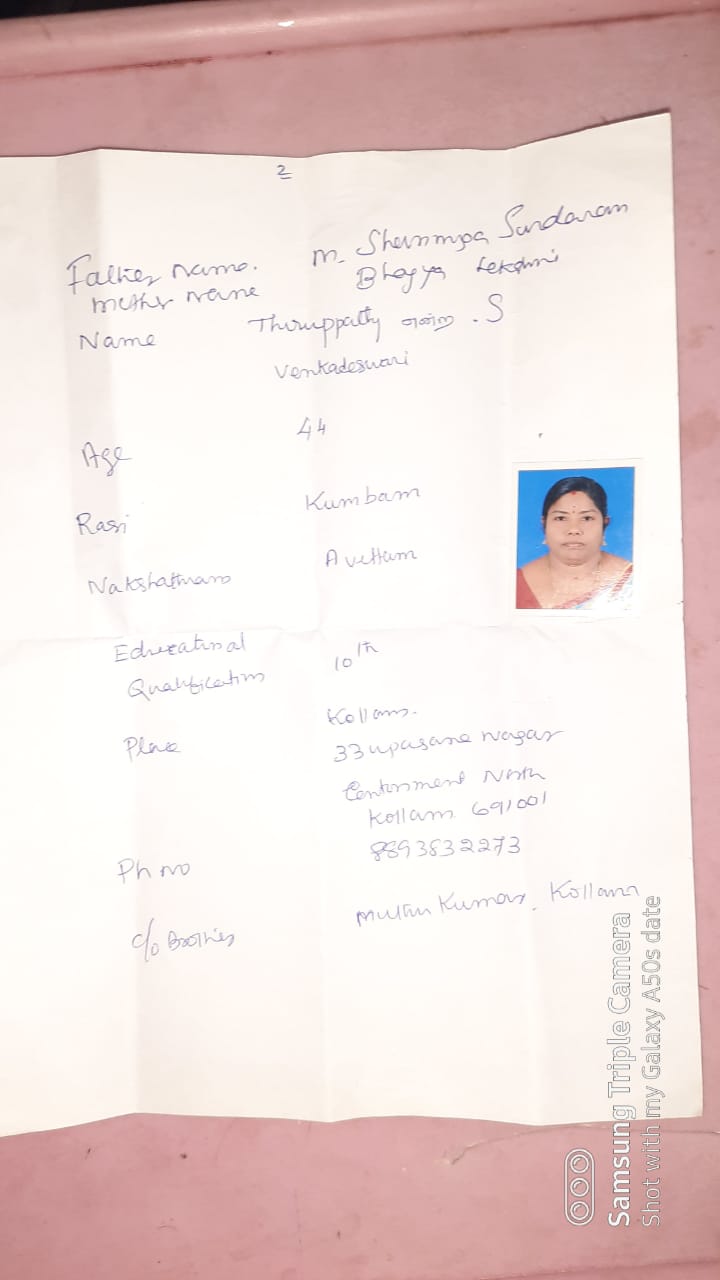 2
Father Name. M. Shanmuga Sundaram
Mother Name Bhagya Lekshmi
Name Thiruppathy என்ற . S
Venkadeswari
Age 44
Rasi Kumbam
Nakshathram Avittam
Educational Qualification 10th
Place Kollam.
33 upasana Nagar
Contonment North
Kollam 691001
Ph no 8893832273
c/o Brother Muthu Kumar, Kollam
Samsung Triple Camera
Shot with my Galaxy A50s date